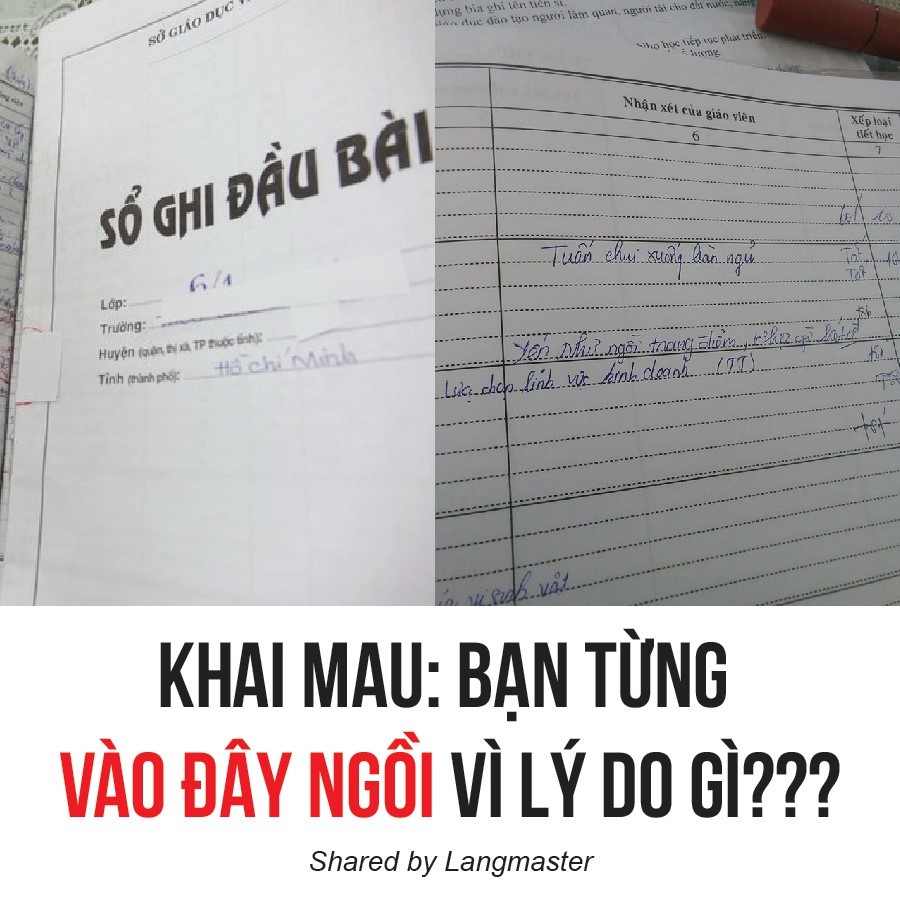 SỞ GIÁO DỤC V
SỔ GHI ĐẦU BÀI
Lớp: 6/1
Trường:
Huyện (quận, thị xã, TP thuộc tỉnh):
Tỉnh (thành phố): Hồ chí Minh
dựng bia ghi tên tiến sĩ.
giáo dục đào tạo người làm quan, người tài cho đất nước, nâng
Nho học tiếp tục phát triển.
Nhận xét của giáo viên
Xếp loại
tiết học
6
7
Tốt 10
Tuấn chui xuống bàn ngủ
Tốt 10
Tốt
Yến Như ngồi trang điểm,
Lựa chọn lĩnh vực kinh doanh (TT)
vi sinh vật
KHAI MAU: BẠN TỪNG
VÀO ĐÂY NGỒI VÌ LÝ DO GÌ???
Shared by Langmaster